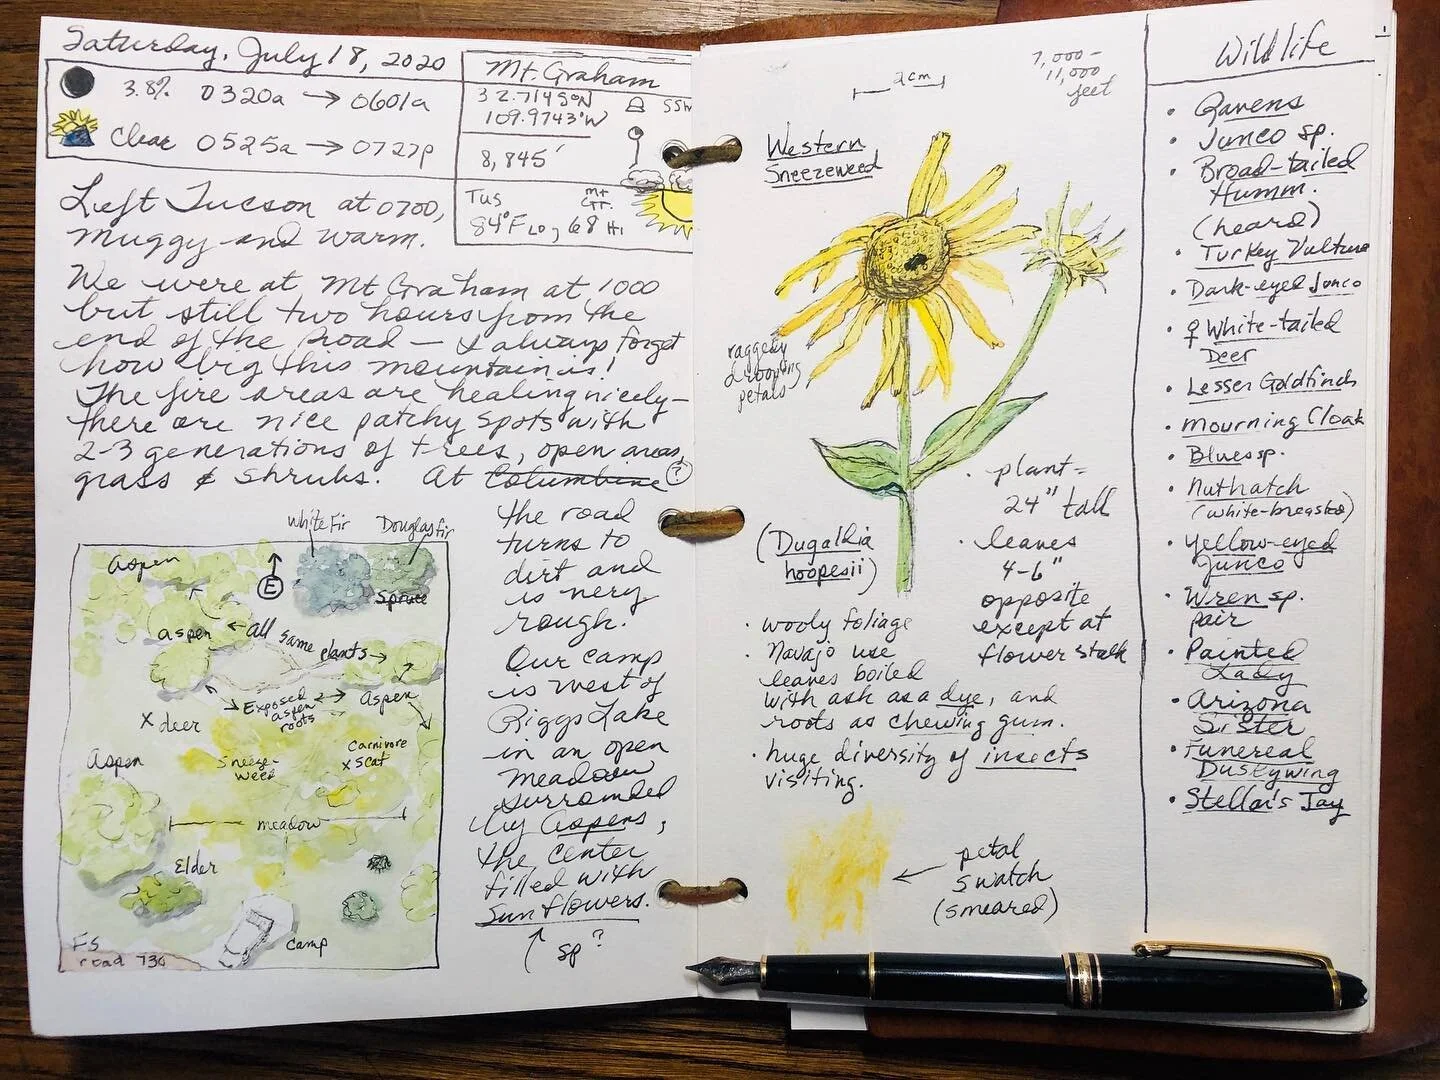 Saturday, July 18, 2020
3.8% 0320a → 0601a
Clear 0525a → 0727p
Mt. Graham
32.7145°N
109.9743°W
SSW
8,845'
Tus
84°F Lo, 68 Hi
Mt
Gr.
Left Tucson at 0700,
muggy and warm.
We were at Mt Graham at 1000
but still two hours from the
end of the road — I always forget
how big this mountain is!
The fire areas are healing nicely —
there are nice patchy spots with
2-3 generations of trees, open areas,
grass & shrubs. At Columbine ?
the road
turns to
dirt and
is very
rough.
Our camp
is west of
Riggs Lake
in an open
meadow
surrounded
by aspens,
the center
filled with
Sunflowers.
↑ sp?
White Fir
Douglas fir
Aspen
E
Spruce
aspen ← all same plants →
Exposed
aspen
roots
Aspen
x deer
Aspen
Sneeze-
weed
Carnivore
x scat
meadow
Elder
camp
FS
road 730
2cm
7,000 -
11,000
feet
Western
Sneezeweed
raggedy
drooping
petals
(Dugaldia
hoopesii)
• plant =
24" tall
• leaves
4-6"
opposite
except at
flower stalk
• wooly foliage
• Navajo use
leaves boiled
with ash as a dye, and
roots as chewing gum.
• huge diversity of insects
visiting.
← petal
swatch
(smeared)
Wildlife
• Ravens
• Junco sp.
• Broad-tailed
Humm.
(heard)
• Turkey Vulture
• Dark-eyed Junco
• ♀ White-tailed
Deer
• Lesser Goldfinch
• Mourning Cloak
• Blues sp.
• Nuthatch
(white-breasted)
• Yellow-eyed
Junco
• Wren sp.
pair
• Painted
Lady
• Arizona
Sister
• Funereal
Duskywing
• Stellar's Jay